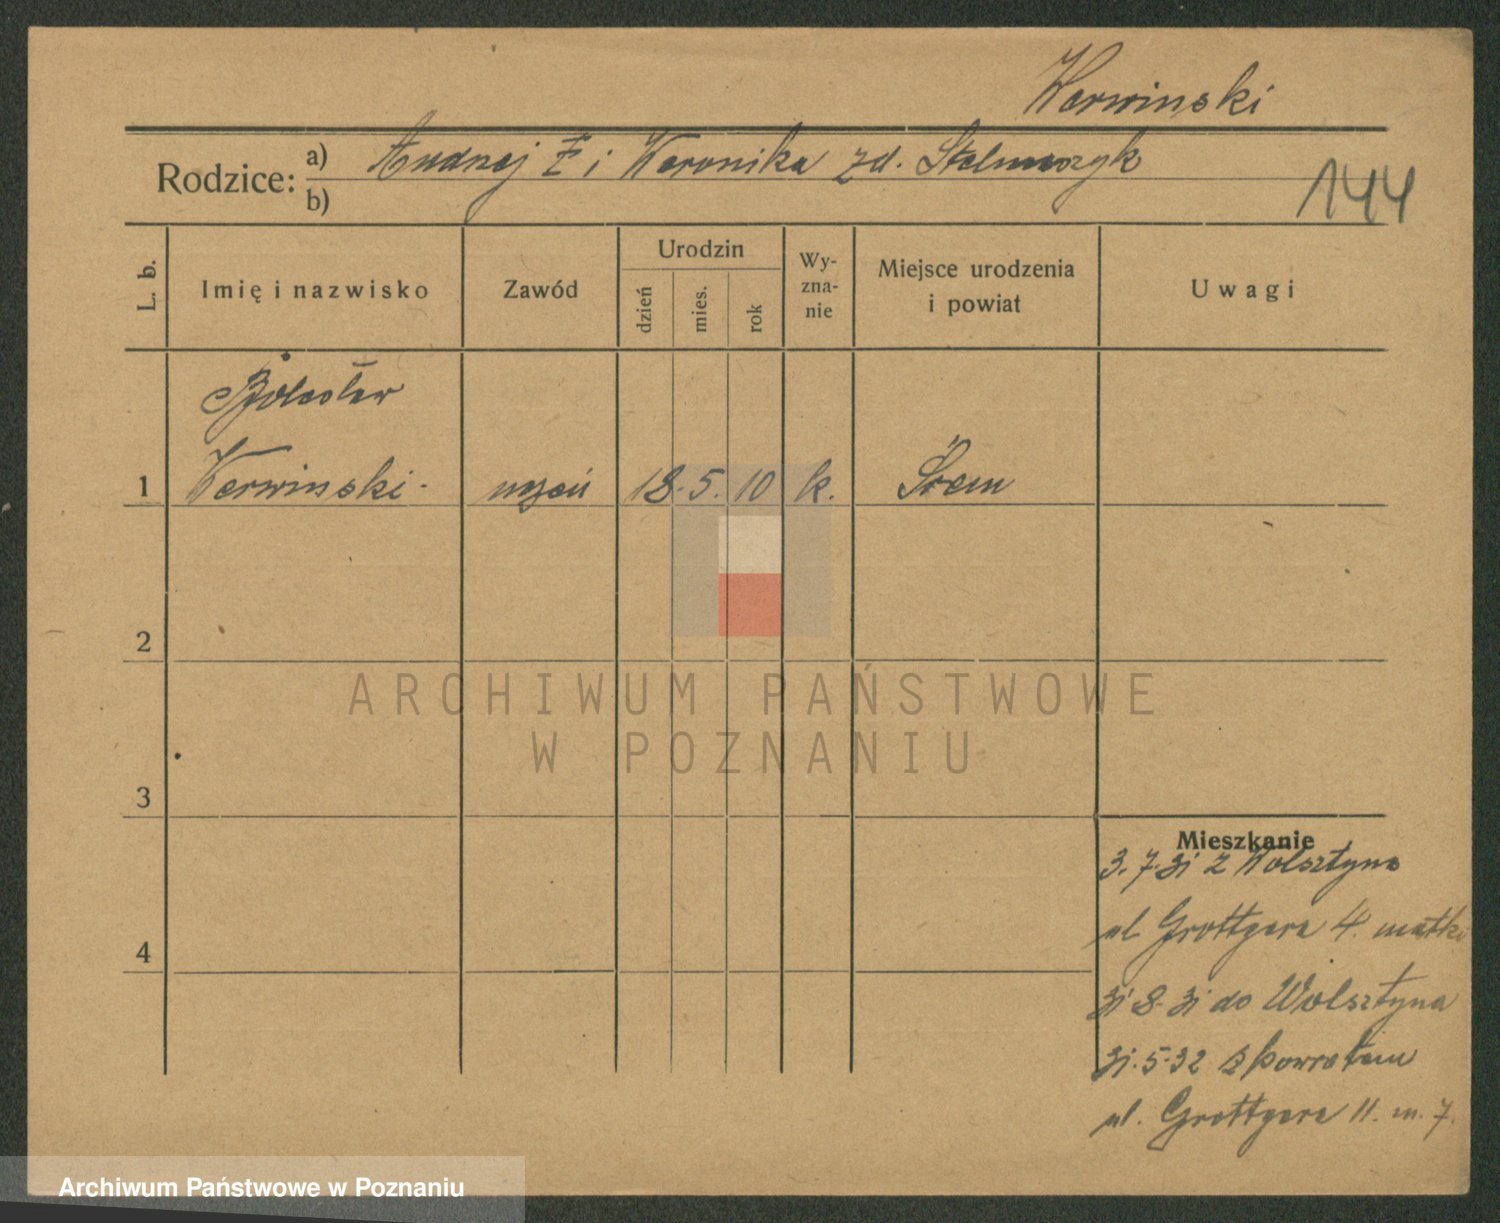 Werwinski
Rodzice: a) Andrzej i Weronika zd. Stelmaszyk
b)
144
L. b.
Imię i nazwisko
Zawód
Urodzin
dzień
mies.
rok
Wy-
zna-
nie
Miejsce urodzenia
i powiat
Uwagi
Bolesław
1 Werwinski - uczeń 18. 5. 10 k. Śrem
2
ARCHIWUM PAŃSTWOWE
W POZNANIU
3
Mieszkanie
3.7.31 z Wolsztyna
4
ul Grottgera 4. matki
31 8. 31 do Wolsztyna
31.5.32 z powrotem
ul. Grottgera 11. m. 7.
Archiwum Państwowe w Poznaniu